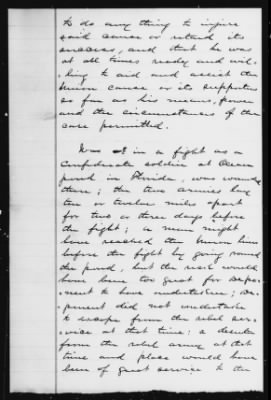 to do any thing to injure
said cause or retard its
success, and that he was
at all times ready and wil-
ling to aid and assist the
Union cause or its supporters
so far as his means, power
and the circumstances of the
case permitted.
Was in a fight as a
Confederate soldier at Ocean
pond in Florida, was wounded
there; the two armies lay
ten or twelve miles apart
for two or three days before
the fight; a man might
have reached the Union lines
before the fight by going round
the pond, but the risk would
have been too great for depo-
nent to have undertaken; de-
ponent did not undertake
to escape from the rebel ser-
vice at that time; a deserter
from the rebel army at that
time and place would have
been of great service to the